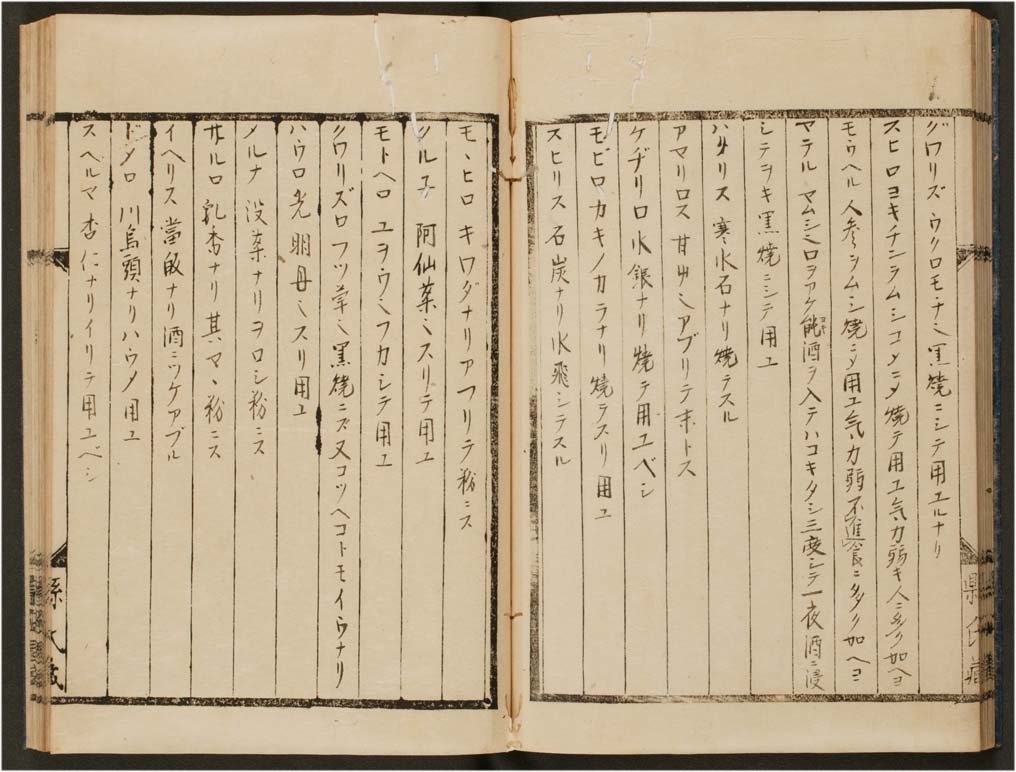 グワリズ ウクロモチナミ黒焼ニシテ用エルナリ
スヒロ コキチンラムシコノニタ焼テ用エ気力弱キ人ニ多ク加ヘヨ
モウヘル 人参ラムシ焼ニメ用エ気力弱不進食ニタタク加ヘヨ
マラル マムシミロヲアケ能酒ラ入テハコキタシ三度シテ一夜酒ニ浸
シテヲキ黒焼ニシテ用ユ
ハサリス 寒水石ナリ焼テスル
アマリロス 甘草ミアブリテ末トス
ケヂリロ 水銀ナリ焼テ用ユベシ
モビロ カキノカラナリ焼テスリ用ユ
スヒリス 石炭ナリ水飛シテスル
モヽヒロ キワダナリアフリテ粉ニス
クル子 阿仙薬ミスリテ用エ
モトヘロ ユヲウミフカシテ用エ
クワリズロ フツ草ミ黒焼ニズ又コツヘコトモイウナリ
ハウロ 光明丹ミスリ用エ
ノルナ 没薬ナリヲロシ粉ニス
サルロ 乳香ナリ其マヽ粉ニス
イヘリス 當皈ナリ酒ニツケアブル
ドメロ 川烏頭ナリハウメ用エ
スヘルマ 杏仁ナリイリテ用エベシ